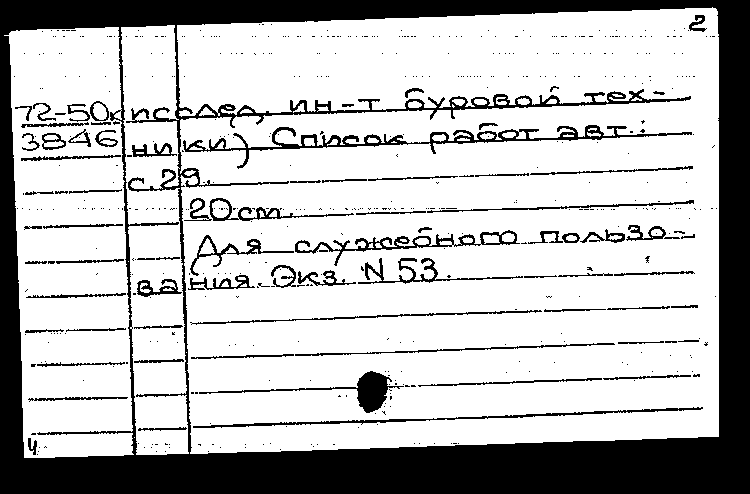 2
72-50к исслед. ин-т буровой тех-
3846 ники) Список работ авт.:
с.29.
20 см.
Для служебного пользо-
вания. Экз. N 53.
4